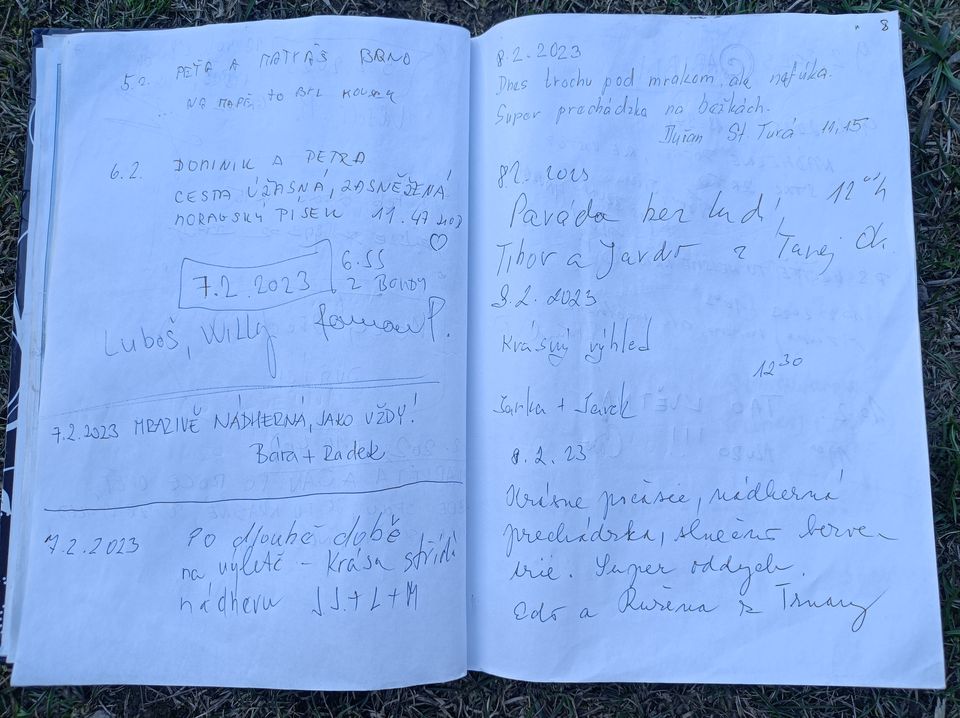 5.2. PEŤA A MATYÁŠ BRNO
NA MAPĚ to BYL KOUSEK
6.2. DOMINIK A PETRA
CESTA ÚŽASNÁ, ZASNĚŽENÁ
MORAVSKÝ PÍSEK 11.47
♡
7.2.2023
6.SS
Z
Luboš, Willy
7.2.2023 MRAZIVĚ NÁDHERNÁ, JAKO VŽDY!
Bára + Radek
7.2.2023 Po dlouhé době
na výletě – Krása střídá
nádheru JJ.+L+M
8
8.2.2023
Dnes trochu pod mrakom ale nefúka.
Super prechádzka na bežkách.
Dušan St. Turá 11,15
82. 2023
12 00 h
Paráda bez ludí
Tibor a
8.2.2023
Krásný výhled
12 30
Janka + Jarek
8.2.23
Krásne počasie, nádherná
prechádzka, slnečno bezve-
trie. Super oddych.
Edo a Ružena z Trnavy